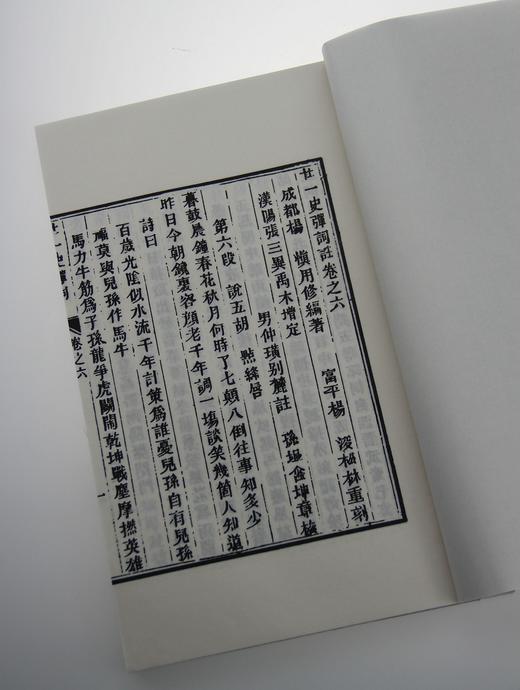 廿一史彈詞註卷之六
成都楊 慎用修編著 富平楊 浚松林重刊
漢陽張三異禹木增定 孫坦含坤章校
男仲璜别麓註
第六段 說五胡 點絳唇
暮鼓晨鐘春花秋月何時了七顛八倒往事知多少
昨日今朝鏡裏容顔老千年調一塲談笑幾箇人知道
詩曰
百歲光陰似水流千年計策爲誰憂兒孫自有兒孫
福莫與兒孫作馬牛
馬力牛筋爲子孫龍爭虎鬭鬧乾坤戰塵摩撫英雄
廿一史彈詞 卷之六 一